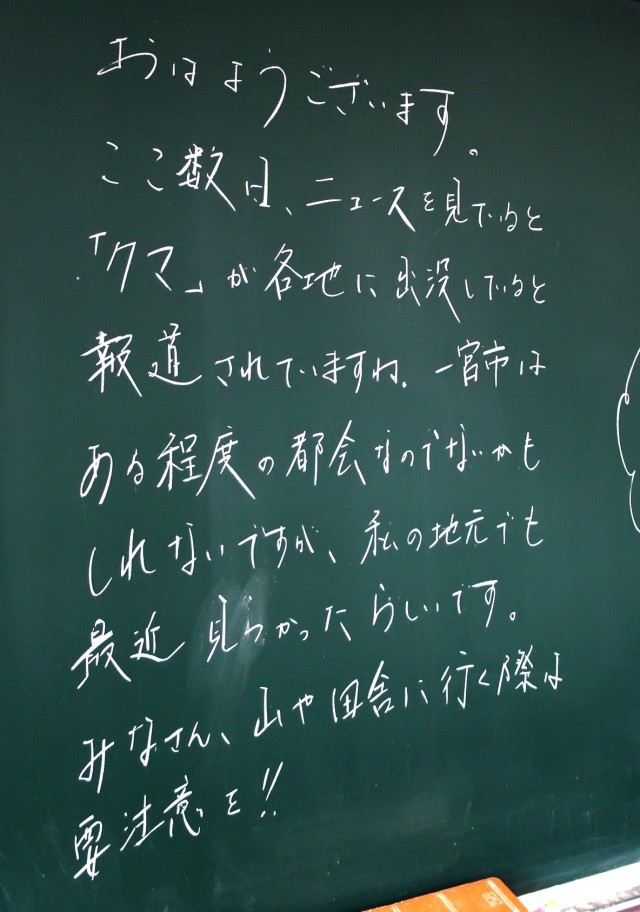 おはようございます。
ここ数日、ニュースを見ていると
「クマ」が各地に出没していると
報道されていますね。一宮市は
ある程度の都会なのでないかも
しれないですが、私の地元でも
最近見つかったらしいです。
みなさん、山や田舎に行く際は
要注意を!!